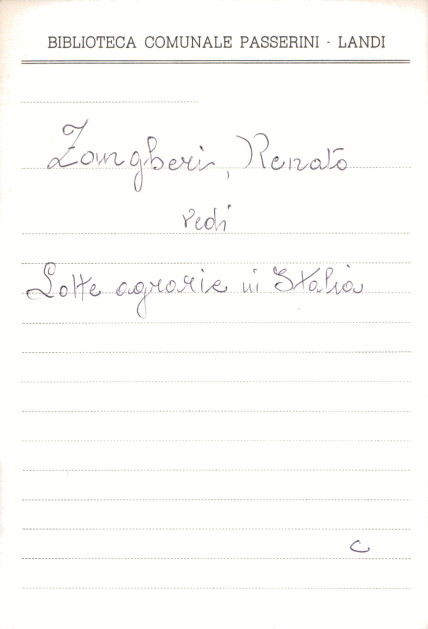 BIBLIOTECA COMUNALE PASSERINI - LANDI
Zangheri, Renato
vedi
Lotte agrarie in Italia
C